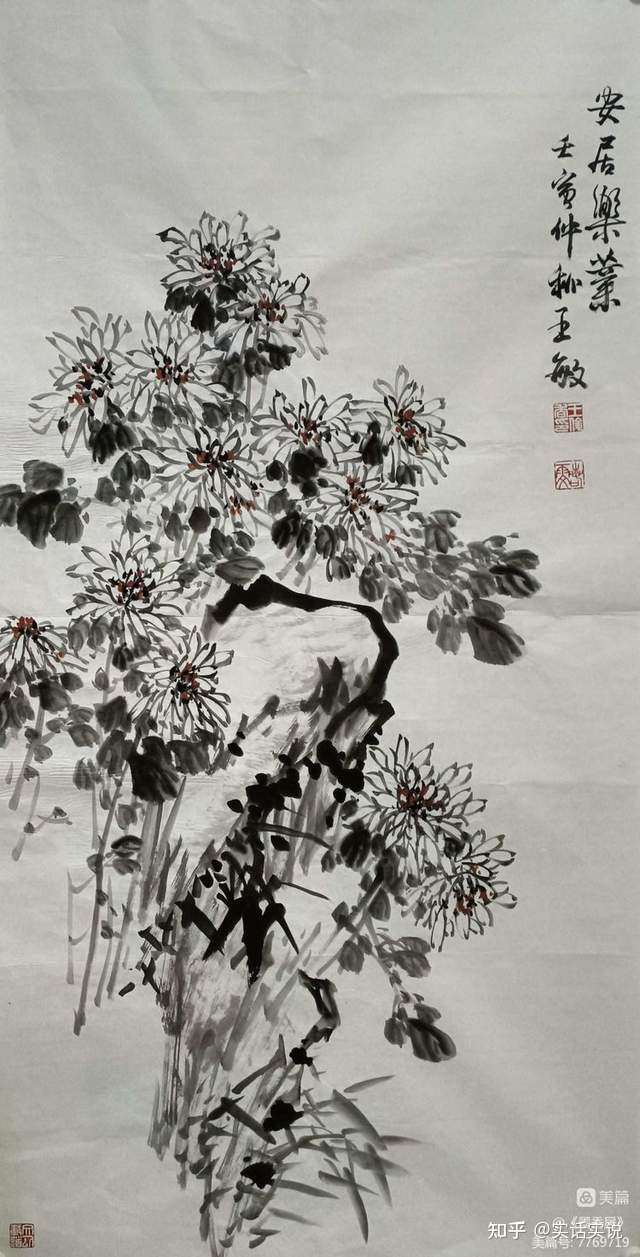 安居樂業
壬寅仲秋王敏
美篇
知乎 @实话实说
美篇号: 7769719